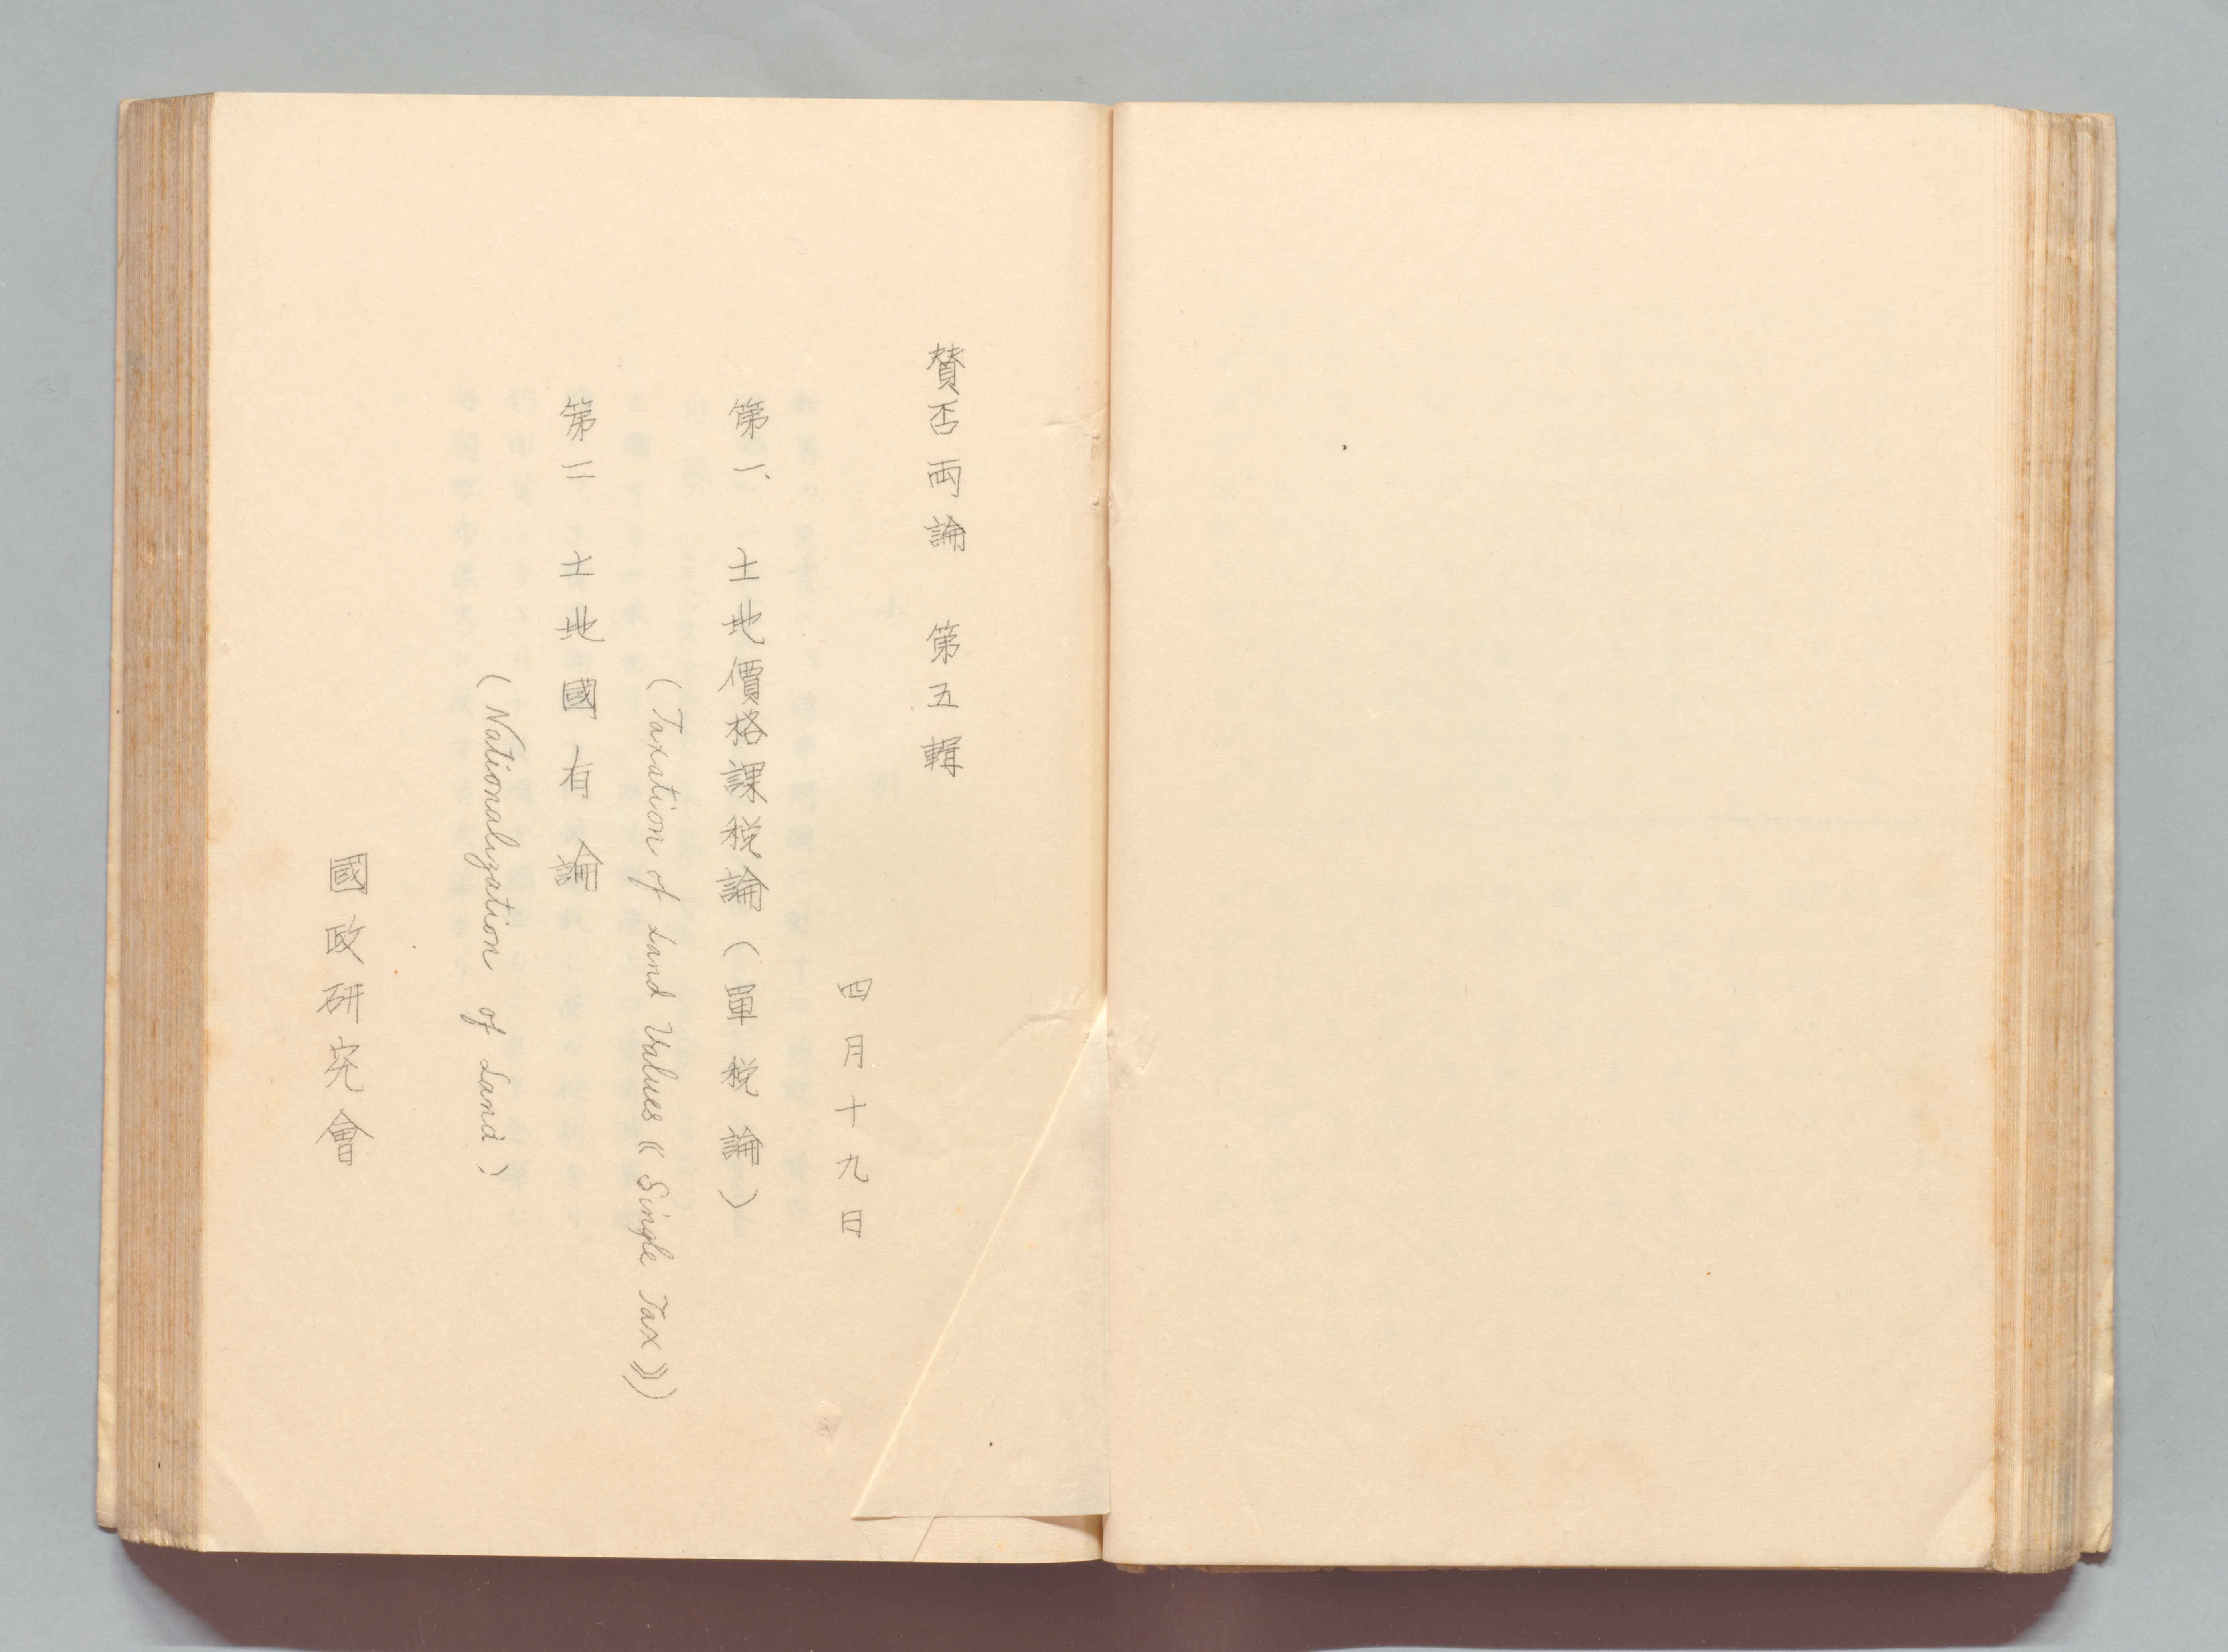 賛否両論　第五輯
四月十九日
第一、土地價格課税論（單税論）
(Taxation of Land Values《Single Tax》)
第二　土地國有論
(Nationalization of Land)
國政研究會